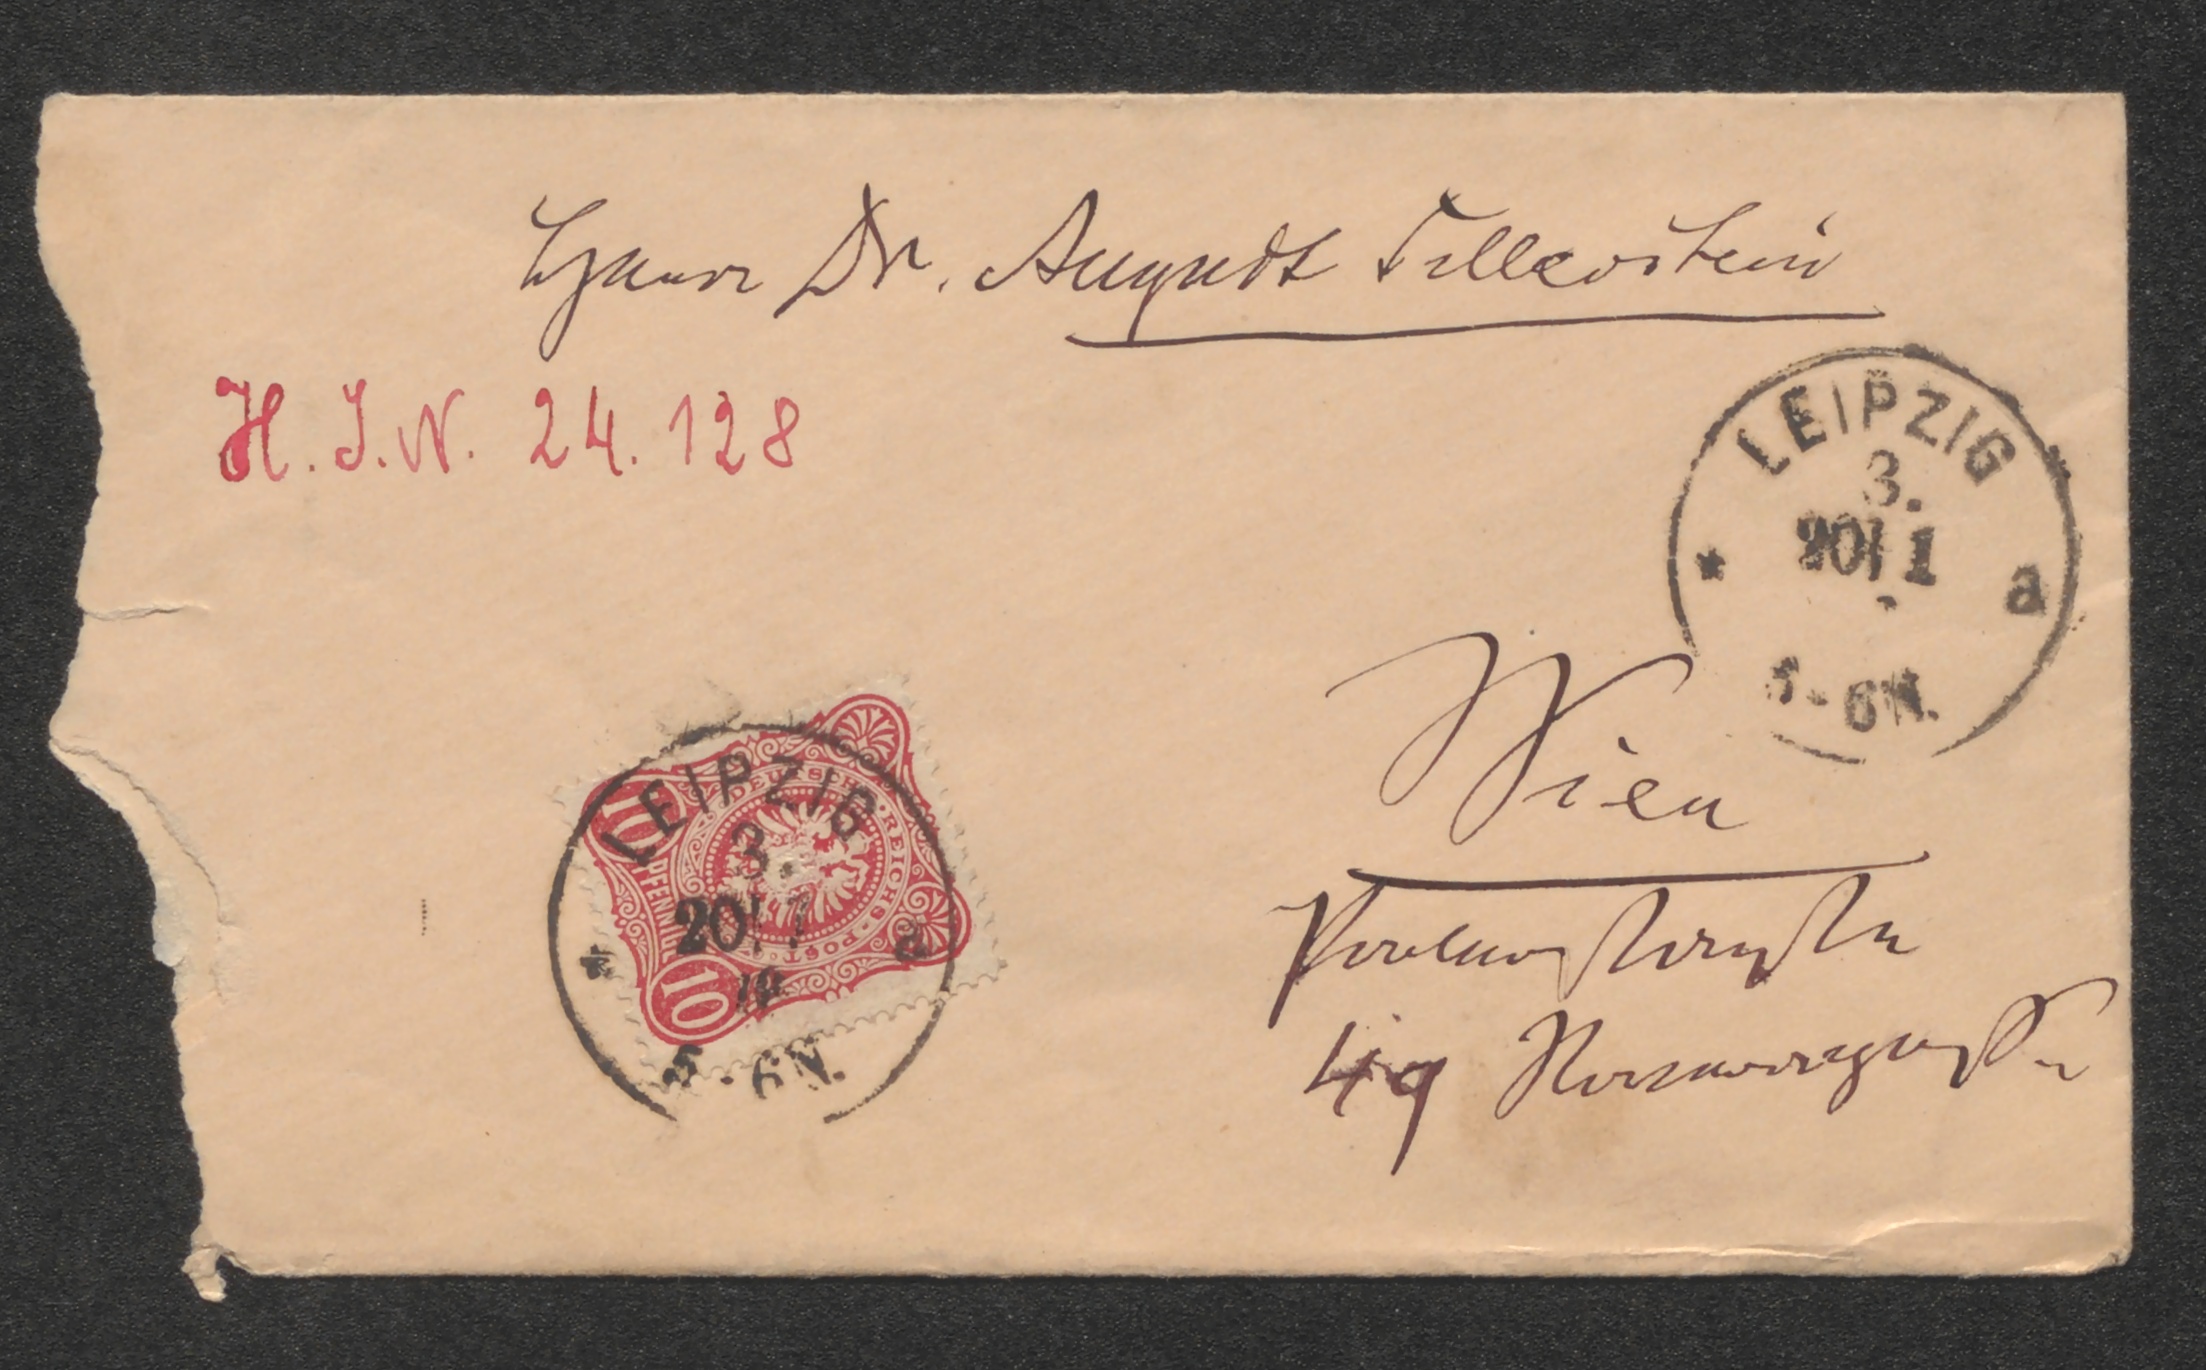 Herrn Dr. August Sellerstein
H. I. N. 24.128
LEIPZIG
3.
20/ 1
* a
5-6 N.
Wien
49
LEIPZIG
3.
20/ 1
* a
5-6 N.
DEUTSCHE REICHS-POST
10 PFENNIG 10